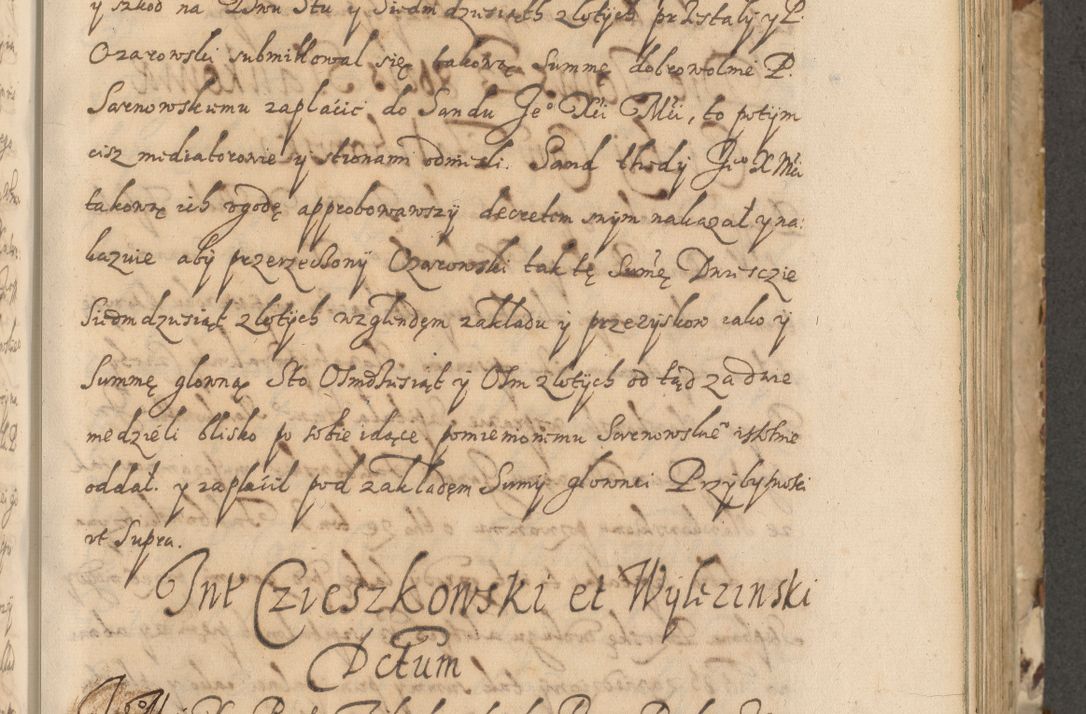 y szkod na Dwu Stu y Siedmdziesiąth złotych przestaly y P.
Ozarowski submittował się takową Summę dobrowolnie P.
Sarnowskiemu zapłacic do Sandu Je° Xci Mci, to potym
cisz mediatorowie y stronam odniesli. Sand thedy Je° X Mci
takową ich ugodę approbowawszy decretem swym nakazał y na
kazuie aby przerzeczony Ozarowski tak tę Sumę Dwiesczie
Siedmdziesiąt złotych względem zakładu y przezyskow iako y
Summę głowną Sto Osmdziesiąt y Osm złotych od tąd za dwie
niedzieli blisko po sobie idące pomienionemu Sarnowskie° istotnie
oddał. y zapłacił pod zakładem Sumy głownei Przybytnosci
ut Supra.
Int Czieszkowski et Wylezinski
Dctum